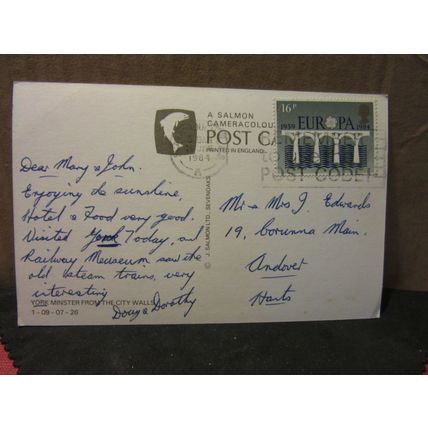 A SALMON
CAMERACOLOUR
POST CA
PRINTED IN ENGLAND
1984
16P
1959 EUROPA 1984
POST CODE
Dear Mary & John.
Enjoying the sunshine,
Hotel & Food very good.
Visited York Today, and
Railway Meuseum saw the
old steam trains, very
interesting
Doug & Dorothy
YORK MINSTER FROM THE CITY WALLS
1-09-07-26
© J. SALMON LTD. SEVENOAKS
Mr & Mrs J. Edwards
19, Corunna Main.
Andover
Hants